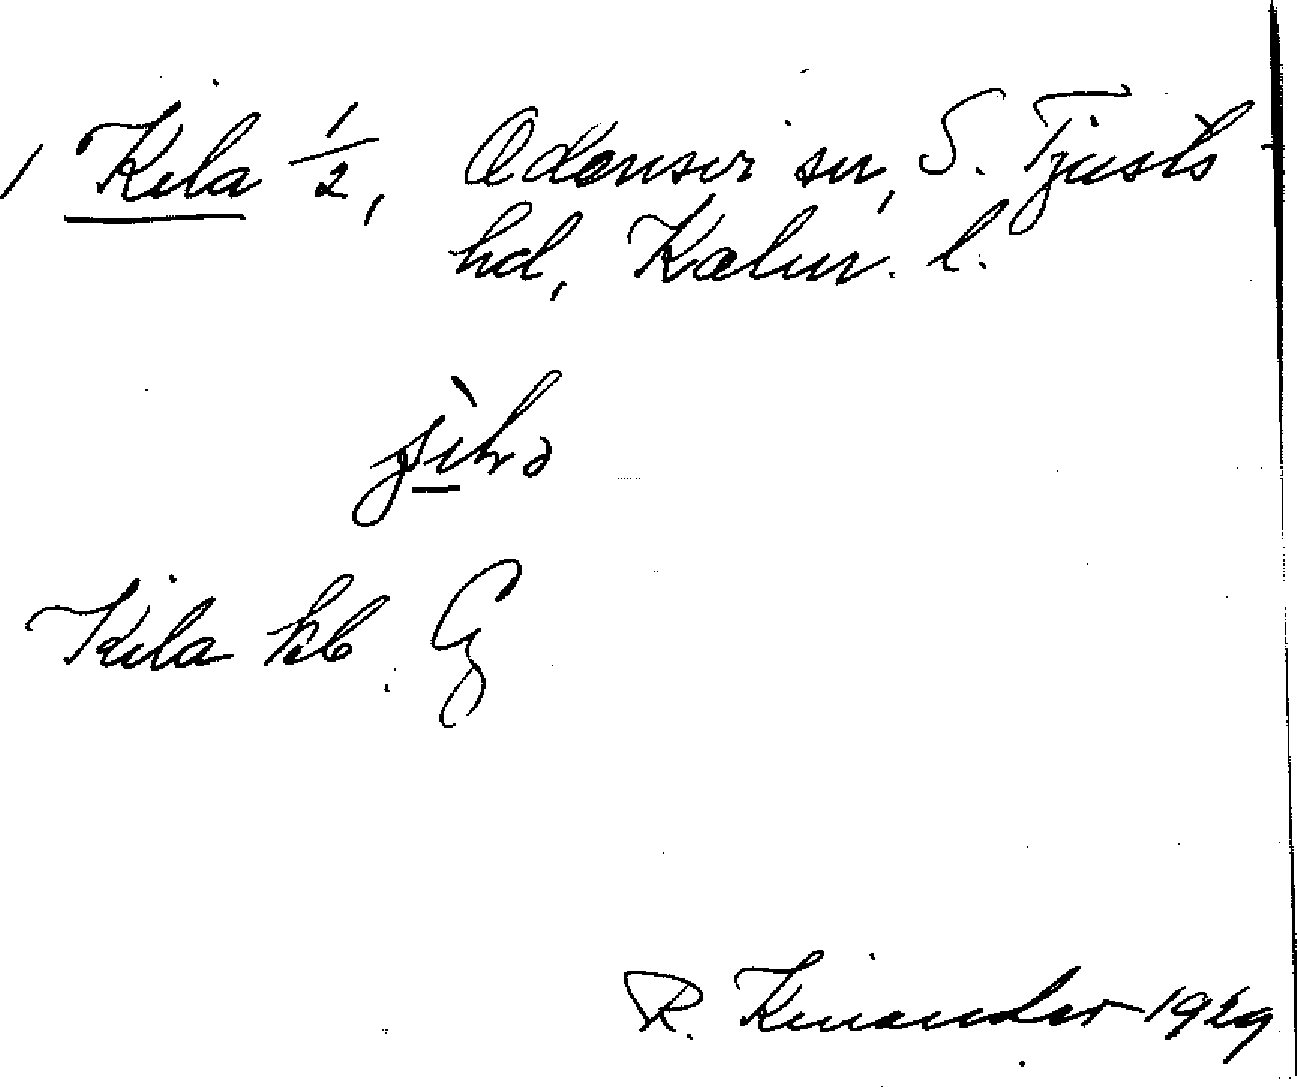 1 Kila 1/2, Odensvi sn, S. Tjusts
hd, Kalm. l.
Kila kb. G
R. Kinander 1929